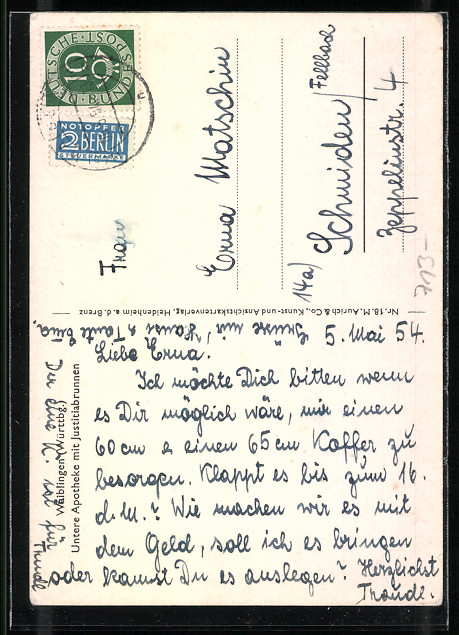 DEUTSCHE BUNDESPOST
10
NOTOPFER
2 BERLIN
STEUERMARKE
Frau
Erna Matschin
14a) Schmiden/Fellbach
Zeppelinstr. 4
713-
Nr. 18. M. Aurich & Co., Kunst- und Ansichtskartenverlag, Heidenheim a. d. Brenz
Waiblingen (Württbg.)
Untere Apotheke mit Justitiabrunnen
5. Mai 54.
Liebe Erna.
Ich möchte Dich bitten wenn
es Dir möglich wäre, mir einen
60 cm & einen 65 cm Koffer zu
besorgen. Klappt es bis zum 16.
d. M.? Wie machen wir es mit
dem Geld, soll ich es bringen
oder kannst Du es auslegen? Herzlichst
Traudl.
Der eine K. ist für
Traudl
Grüsse mir Hans & Tante Erna.